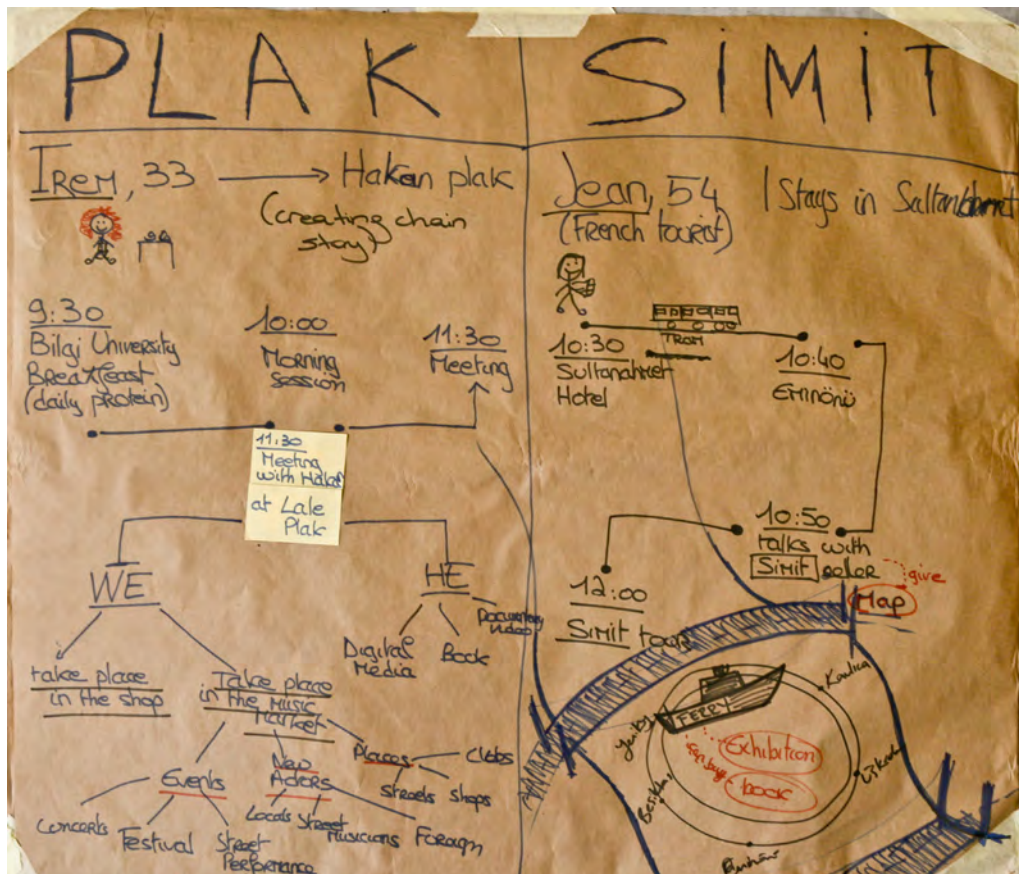 PLAK
IREM, 33 → Hakan plak
(creating chain
story)
9:30
Bilgi University
Breakfeast
(daily protein)
10:00
Morning
session
11:30
Meeting
11:30
Meeting
with Hakan
at Lale
Plak
WE
take place
in the shop
Take place
in the music
market
Events
Concerts
Festival
Street
Performance
New
Actors
Locals
Street
Musicians
Foreign
Places
Clubs
Streets
Shops
HE
Digital
Media
Book
Documentary
Video
SİMİT
Jean, 54
(French tourist)
| Stays in Sultanahmet
TRAM
10:30
Sultanahmet
Hotel
10:40
Eminönü
10:50
talks with
Simit seller
give
Map
12:00
Simit tour
FERRY
Kanlıca
Yeniköy
Exhibition
can buy
book
Üsküdar
Beşiktaş
Eminönü